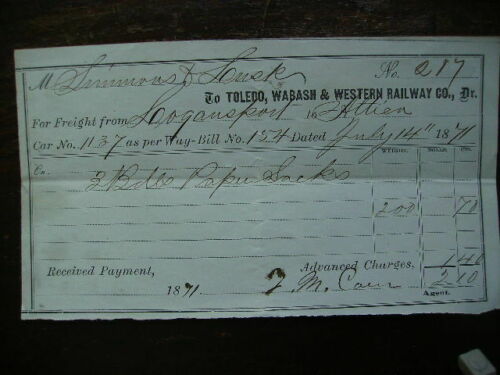 M Simmons & Lusk No. 217
To TOLEDO, WABASH & WESTERN RAILWAY CO., Dr.
For Freight from Logansport to Attica
Car No. 1137 as per Way-Bill No. 154 Dated July 14" 1871
On 3 Bdls Paper Sacks
200 70
Advanced Charges, 1 40
Received Payment, 2 10
1871 J. M. Agent.